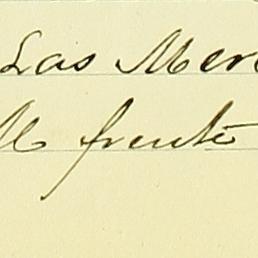 Las Mer
M frente